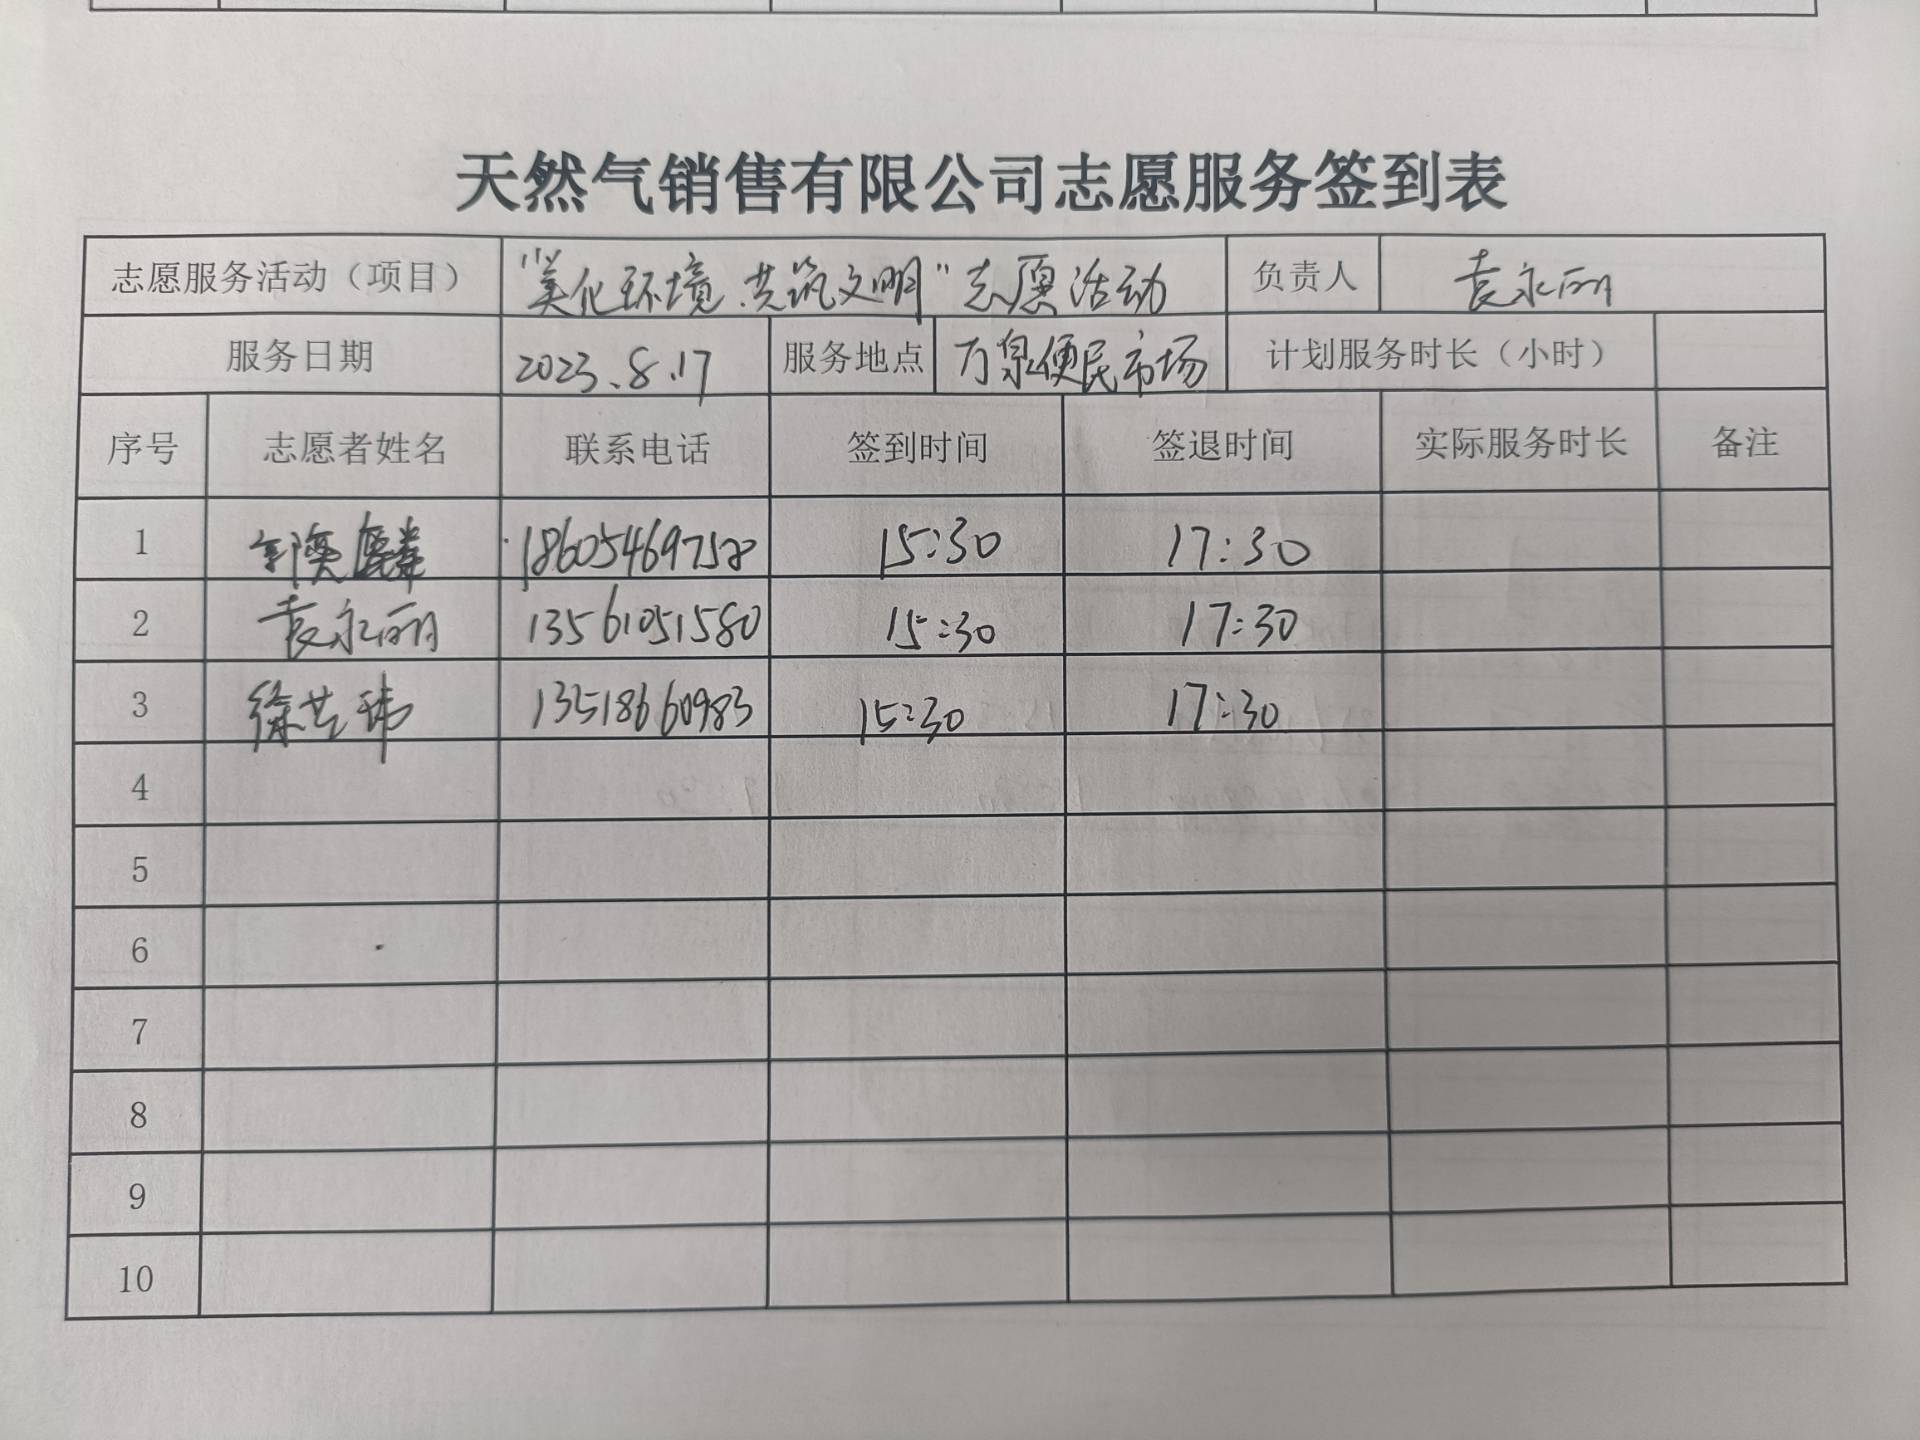 天然气销售有限公司志愿服务签到表
志愿服务活动（项目） “美化环境、共筑文明”志愿活动 负责人 袁永丽
服务日期 2023.8.17 服务地点 万泉便民市场 计划服务时长（小时）
序号 志愿者姓名 联系电话 签到时间 签退时间 实际服务时长 备注
1 18605469758 15:30 17:30
2 袁永丽 13561051580 15:30 17:30
3 徐芸玮 13518660983 15:30 17:30
4
5
6
7
8
9
10